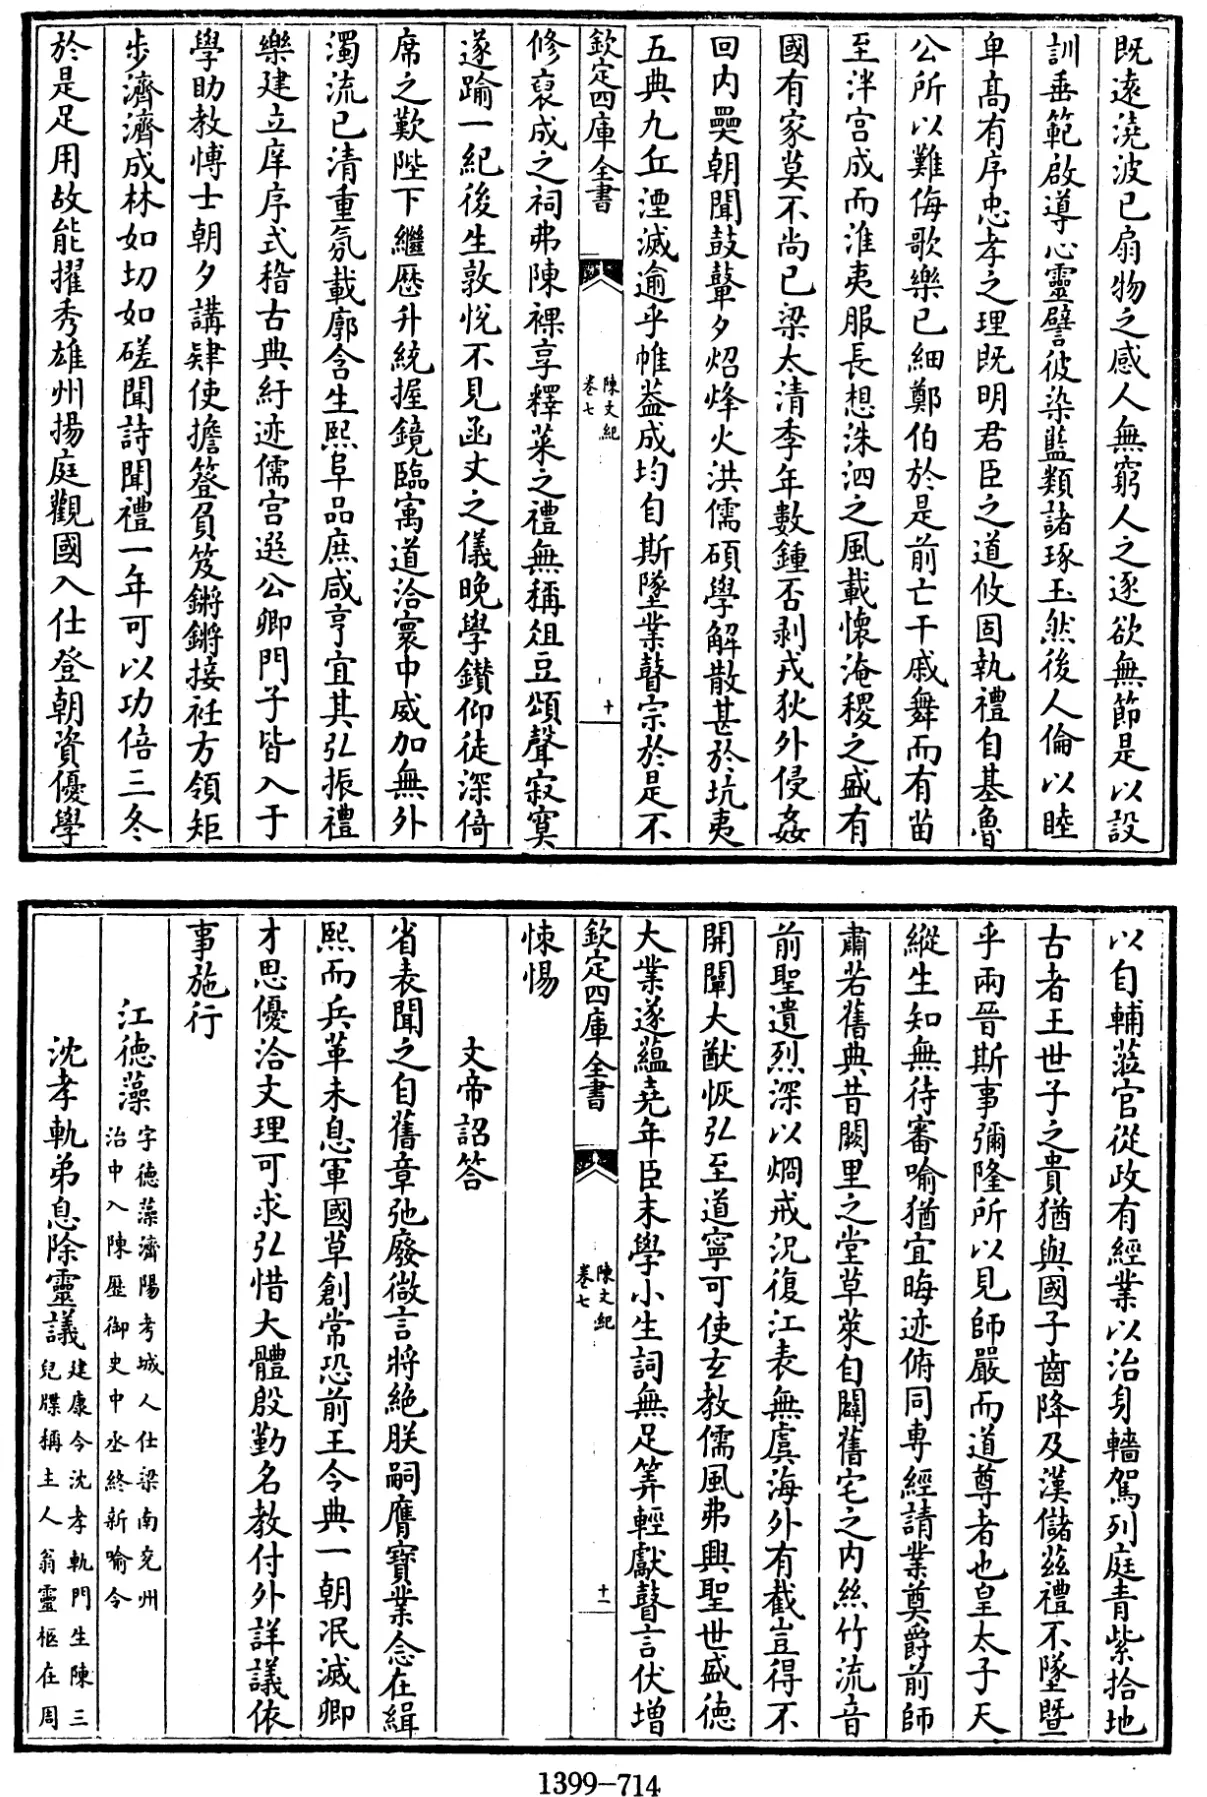 既遠澆波已扇物之感人無窮人之逐欲無節是以設
訓垂範啟導心靈譬彼染藍類諸琢玉然後人倫以睦
卑髙有序忠孝之理既明君臣之道攸固執禮自基魯
公所以難侮歌樂已細鄭伯於是前亡干戚舞而有苗
至泮宫成而淮夷服長想洙泗之風載懷淹稷之盛有
國有家莫不尚已梁太清季年數鍾否剥戎狄外侵姦
回内奰朝聞鼓鼙夕炤烽火洪儒碩學解散甚於坑夷
五典九丘湮滅逾乎帷葢成均自斯墜業瞽宗於是不
欽定四庫全書
陳文紀
卷七
十
修裒成之祠弗陳祼享釋菜之禮無稱俎豆頌聲寂寞
遂踰一紀後生敦悅不見函丈之儀晚學鑚仰徒深倚
席之歎陛下繼厯升統握鏡臨寓道洽寰中威加無外
濁流已清重氛載廓含生熙阜品庶咸亨宜其弘振禮
樂建立庠序式稽古典紆迹儒宫選公卿門子皆入于
學助教愽士朝夕講肄使擔簦負笈鏘鏘接衽方領矩
步濟濟成林如切如磋聞詩聞禮一年可以功倍三冬
於是足用故能擢秀雄州揚庭觀國入仕登朝資優學
以自輔蒞官從政有經業以治身轖駕列庭青紫拾地
古者王世子之貴猶與國子齒降及漢儲兹禮不墜暨
乎兩晉斯事彌隆所以見師嚴而道尊者也皇太子天
縱生知無待審喻猶宜晦迹俯同専經請業奠爵前師
肅若舊典昔闕里之堂草萊自闢舊宅之内絲竹流音
前聖遺烈深以烱戒況復江表無虞海外有截豈得不
開闡大猷恢弘至道寧可使玄教儒風弗興聖世盛徳
大業遂藴堯年臣末學小生詞無足筭輕獻瞽言伏增
欽定四庫全書
陳文紀
卷七
十一
悚惕
文帝詔答
省表聞之自舊章弛廢微言將絶朕嗣膺寳業念在緝
熙而兵革未息軍國草創常恐前王令典一朝泯滅卿
才思優洽文理可求弘惜大體殷勤名教付外詳議依
事施行
江徳藻字徳藻濟陽考城人仕梁南兖州
治中入陳歴御史中丞終新喻令
沈孝軌弟息除靈議建康令沈孝軌門生陳三
兒牒稱主人翁靈柩在周
1399-714